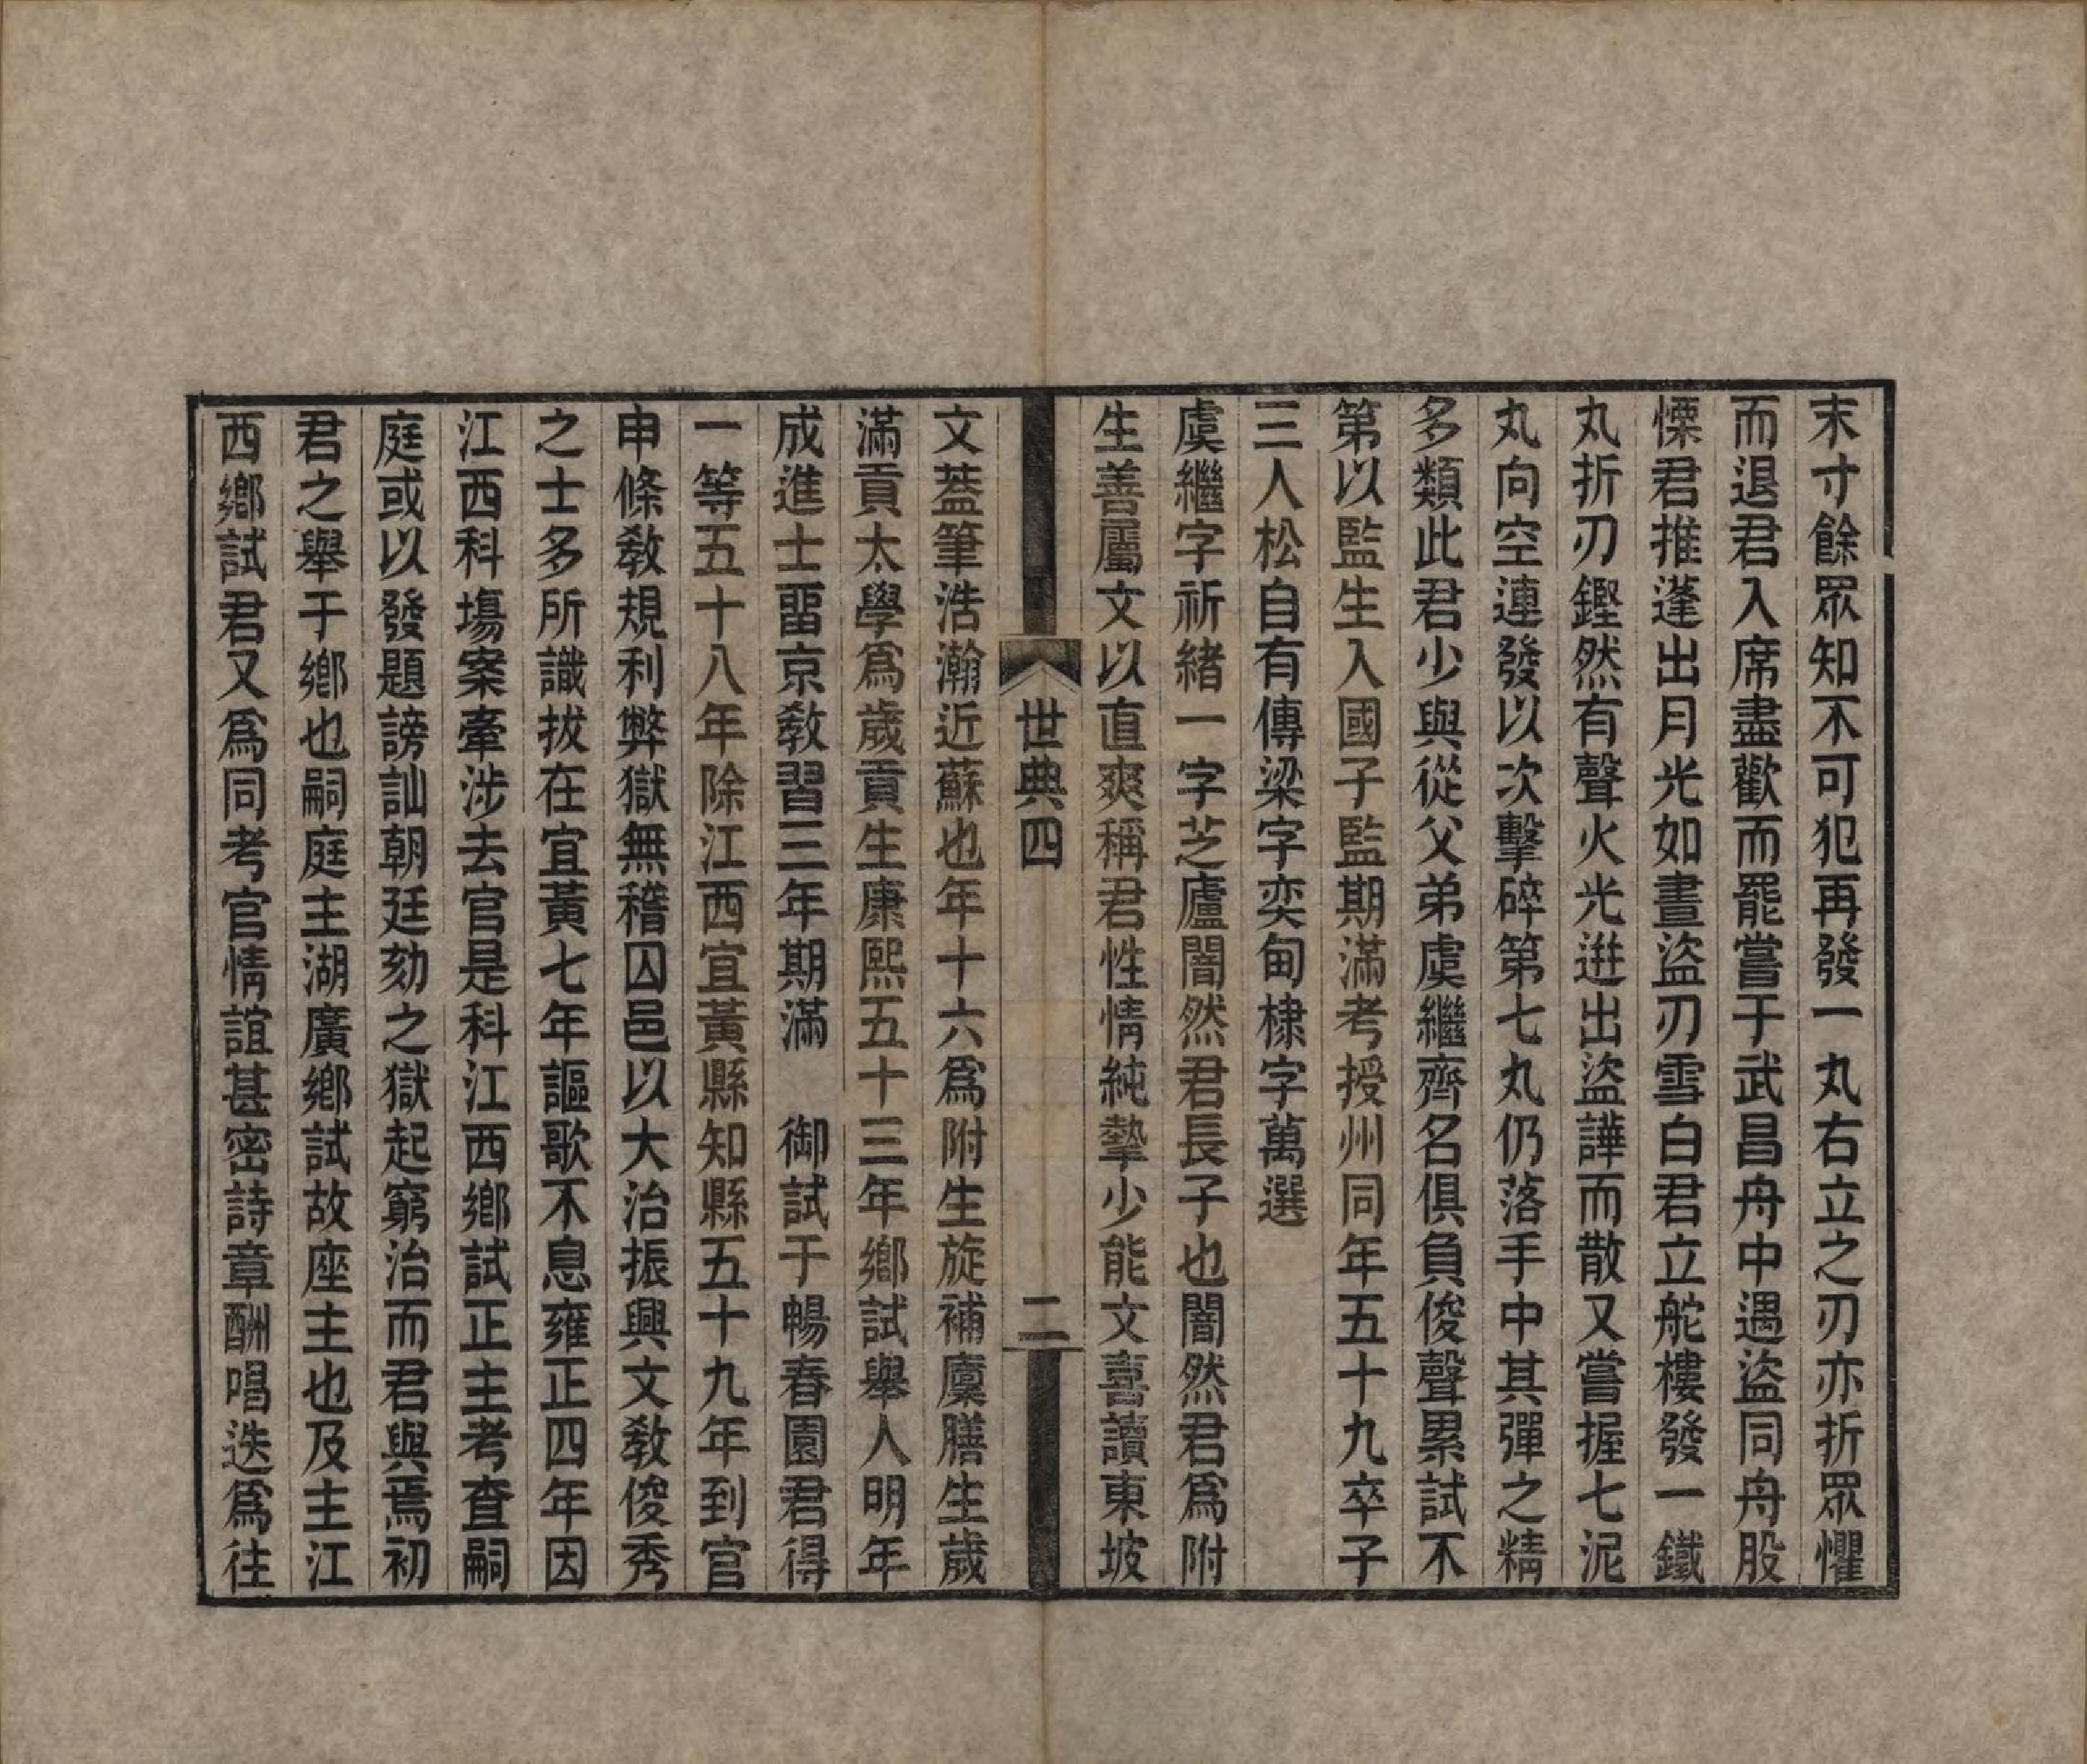 末寸餘眾知不可犯再發一丸右立之刃亦折眾懼
而退君入席盡歡而罷嘗于武昌舟中遇盜同舟股
慄君推蓬出月光如晝盜刃雪白君立舵樓發一鐵
丸折刃鏗然有聲火光迸出盜譁而散又嘗握七泥
丸向空連發以次擊碎第七丸仍落手中其彈之精
多類此君少與從父弟虞繼齊名俱負俊聲累試不
第以監生入國子監期滿考授州同年五十九卒子
三人松自有傳梁字奕甸棣字萬選
虞繼字祈緒一字芝廬闇然君長子也闇然君爲附
生善屬文以直爽稱君性情純摯少能文喜讀東坡
世典四
二
文葢筆浩瀚近蘇也年十六爲附生旋補廩膳生歲
滿貢太學爲歲貢生康熙五十三年鄉試舉人明年
成進士畱京敎習三年期滿　御試于暢春園君得
一等五十八年除江西宜黃縣知縣五十九年到官
申條敎規利弊獄無稽囚邑以大治振興文敎俊秀
之士多所識拔在宜黃七年謳歌不息雍正四年因
江西科塲案牽涉去官是科江西鄉試正主考查嗣
庭或以發題謗訕朝廷劾之獄起窮治而君與焉初
君之舉于鄉也嗣庭主湖廣鄉試故座主也及主江
西鄉試君又爲同考官情誼甚密詩章酬唱迭爲往